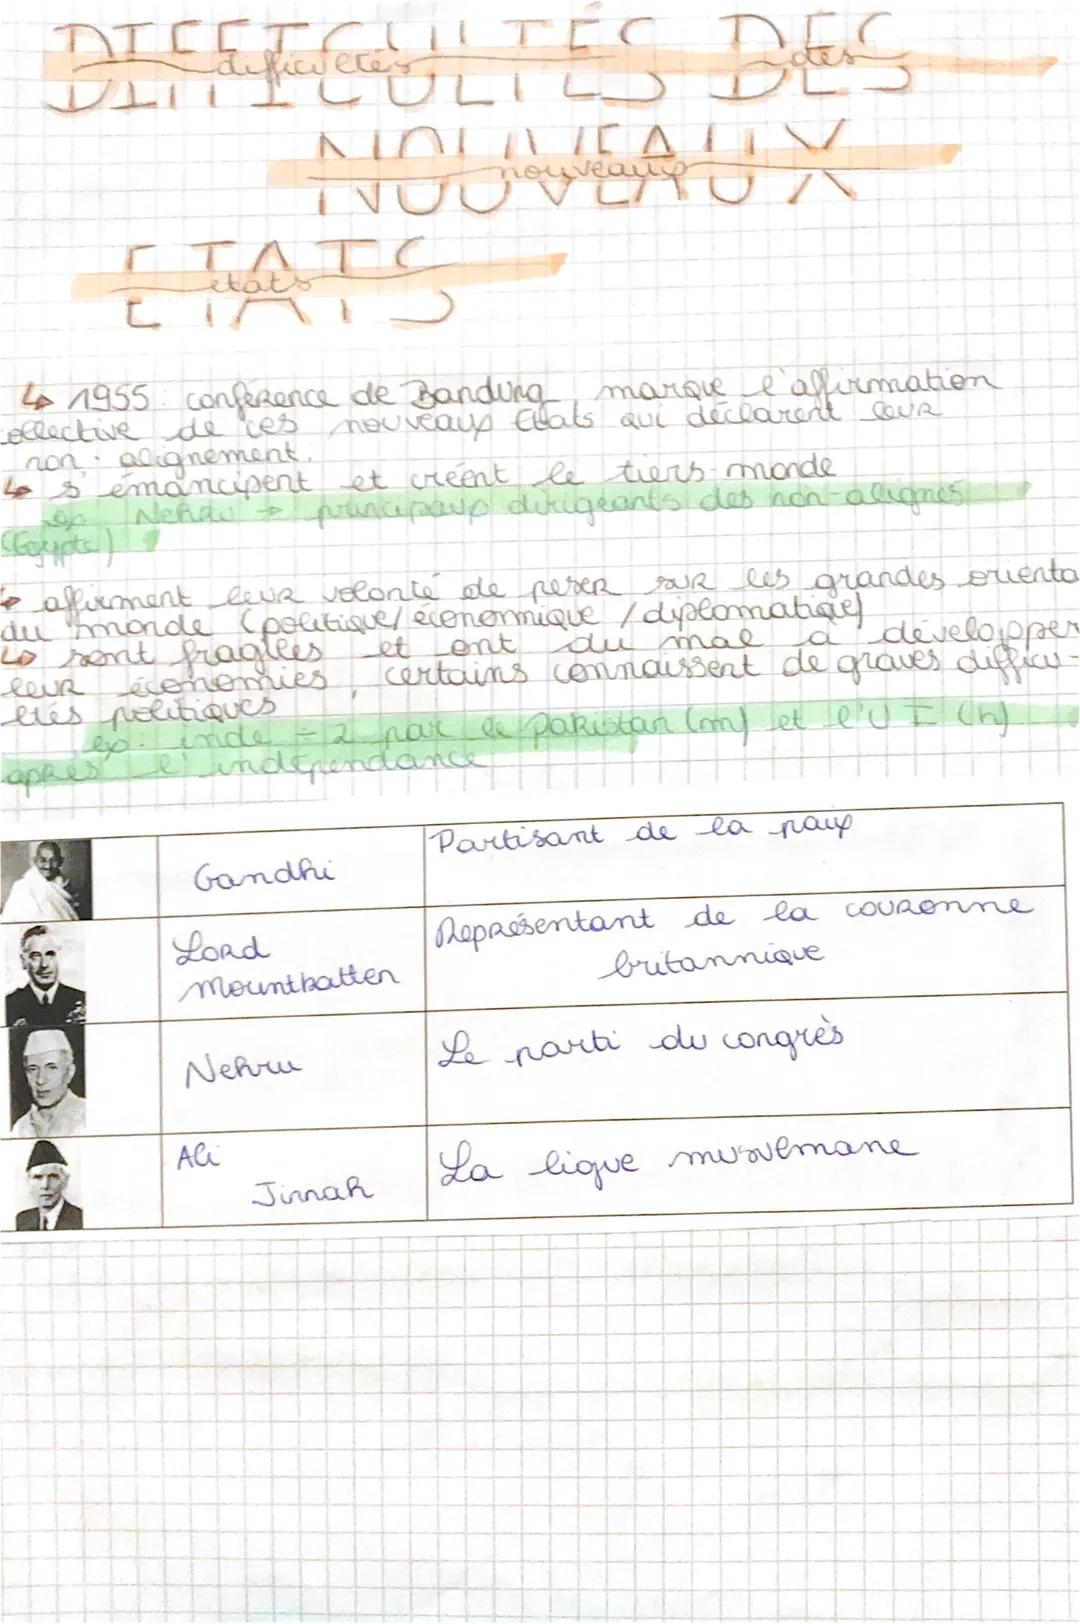 DIFFICULTÉS DES
difficultés des
NOUVEAUX
nouveaux
ETATS
états
↳ 1955 : conférence de Bandung, marque l'affirmation
collective de ces nouveaux Etats qui déclarent leur
non-alignement.
↳ s'émancipent et créent le tiers-monde
ex Nehru → principaux dirigeants des non-alignés
(Egypte)
↳ affirment leur volonté de peser sur les grandes orienta
du monde (politique/économique/diplomatique)
↳ sont fragiles et ont du mal à développer
leur économies, certains connaissent de graves difficu-
ltés politiques
ex: inde ÷ 2 par le Pakistan (m) et l'U I (h)
après l'indépendance
Gandhi
Partisant de la paix
Lord
Mountbatten
Représentant de la couronne
britannique
Nehru
Le parti du congrès
Ali
Jinnah
La ligue musulmane